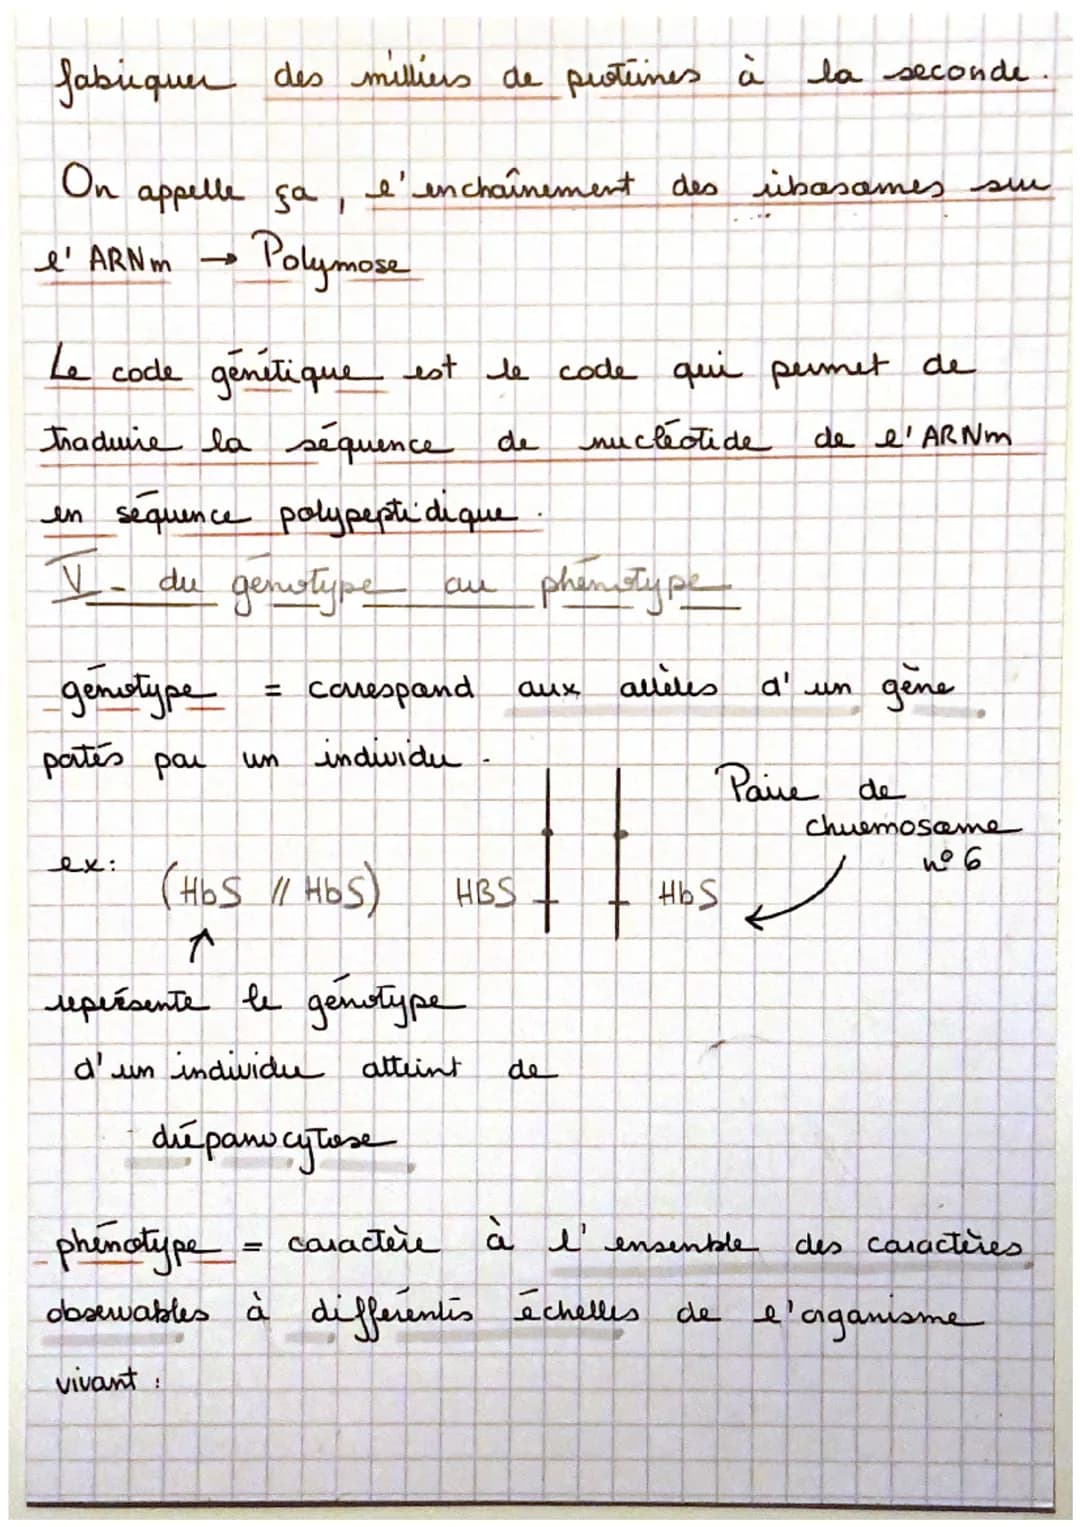 fabriquer des milliers de protéines à la seconde.
On appelle ça, l'enchaînement des ribosomes sur
l'ARNm → Polymose
Le code génétique est le code qui permet de
traduire la séquence de nucléotide de l'ARNm
en séquence polypeptidique.
V- du génotype au phénotype
génotype = correspond aux allèles d'un gène
portés par un individu.
Paire de
chromosome
n° 6
ex:
(HbS // HbS) HBS HbS
représente le génotype
d'un individu atteint de
drépanocytose
phénotype = caractère à l'ensemble des caractères
observables à différentis échelles de l'organisme
vivant :